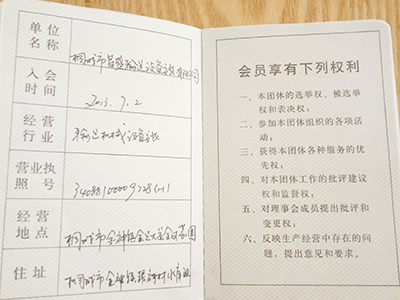 单位名称
桐城市 输送设备 有限公司
入会时间
2013.7.2
经营行业
输送机械 设备
营业执照号
经营地点
桐城市金神镇
住址
桐城市金神镇 村
会员享有下列权利
一、本团体的选举权、被选举
权和表决权；
二、参加本团体组织的各项活
动；
三、获得本团体各种服务的优
先权；
四、对本团体工作的批评建议
权和监督权；
五、对理事会成员提出批评和
变更权；
六、反映生产经营中存在的问
题，提出意见和要求。